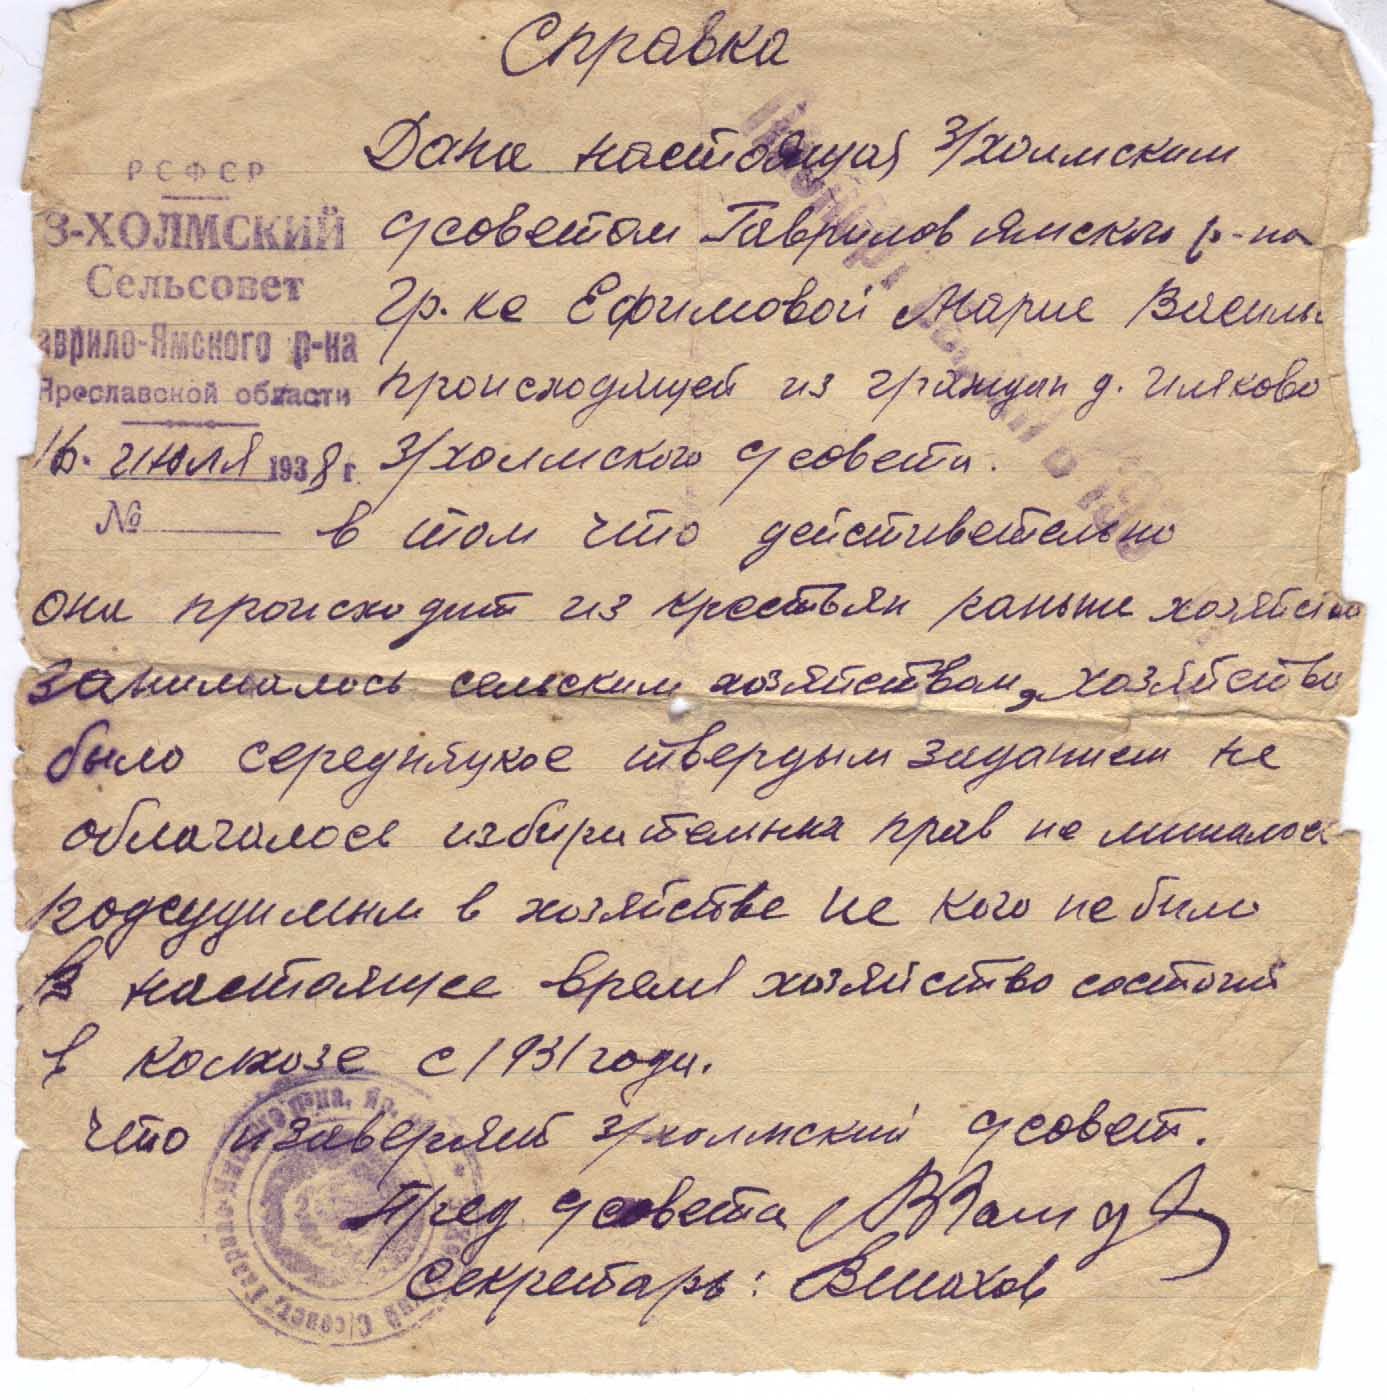 Справка
РСФСР
З-ХОЛМСКИЙ
Сельсовет
аврило-Ямского р-на
Ярославской области
16. июля 1938 г.
№
Дана настоящая З/холмским
с/советом Гаврилов Ямского р-на
Гр.ке Ефимовой Марие Василь
происходящей из граждан д. Иляково
З/холмского с/совета.
в том что действительно
она происходит из крестьян раньше хозяйство
занималось сельским хозяйством, хозяйство
было середняцкое твердым заданием не
облагалось избирительных прав не лишалось
подсудимым в хозяйстве не кого не было
В настоящее время хозяйство состоит
в колхозе с 1931 года.
что и заверяет з/холмский с/совет.
Пред. с/совета
Секретарь: